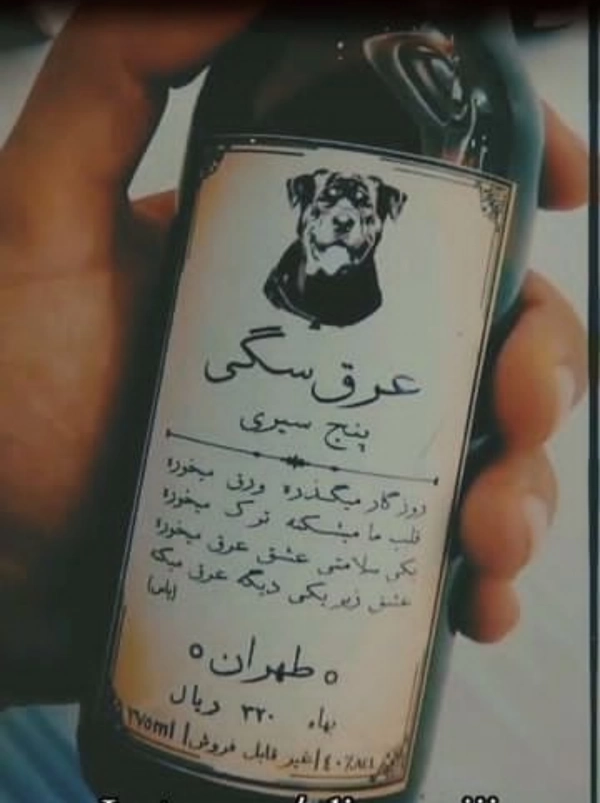 عرق سگی
پنج سیری
روزگار میگذره ورق میخوره
قلب ما میشکنه ترک میخوره
یکی سلامتی عشق عرق میخوره
عشق زیر یکی دیگه عرق میکنه
(یاس)
° طهران °
بهاء ۳۲۰ ریال
۲۷۵ml | غیر قابل فروش | ۴۰٪ALC